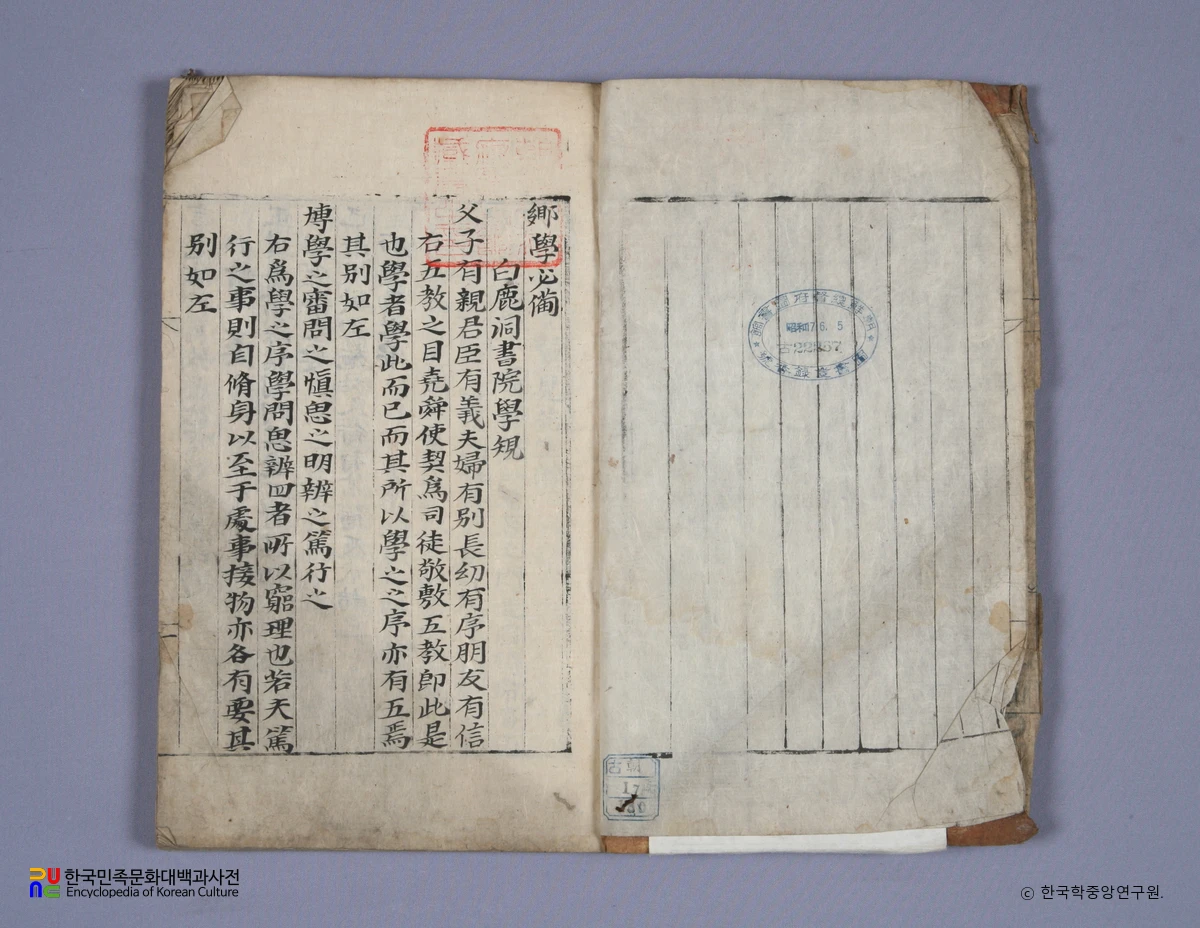 鄉學必備
白鹿洞書院學規
父子有親君臣有義夫婦有別長幼有序朋友有信
右五教之目堯舜使契爲司徒敬敷五教卽此是
也學者學此而已而其所以學之之序亦有五焉
其別如左
博學之審問之愼思之明辨之篤行之
右爲學之序學問思辨四者所以窮理也若天篤
行之事則自脩身以至于處事接物亦各有要其
別如左
朝鮮總督府圖書館
昭和17.6.5
古朝
17
한국민족문화대백과사전
Encyclopedia of Korean Culture
© 한국학중앙연구원.